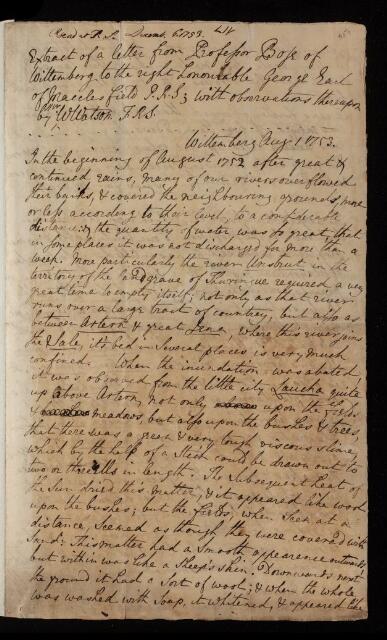 Read at R. S. Decemb. 6. 1753. LIV
Extract of a letter from Professor Bose of
Wittemberg to the right honourable George Earl
of Macclesfield P.R.S; with observations thereupon
by Wm Watson F.R.S.
Wittemberg Aug. 1. 1753.
In the beginning of August 1752 after great &
continued rains, many of our rivers overflowed
their banks, & covered the neighbouring grounds, more
or less according to their level, to a considerable
distance: & the quantity of water was so great, that
in some places it was not discharged for more than a
week. More particularly the river Unstrut in the
territory of the Landgrave of Thuringue required a very
great time to empty itself; not only as that river
runs over a large tract of country, but also as
between Artern & great Jena, where this river joins
the Sale, it's bed in several places is very much
confined. When the inundation was abated,
it was observed from the little city Laucha quite
up above Artern, not only upon the fields
& meadows, but also upon the bushes & trees,
that there was a great & very tough viscous slime,
which by the help of a stick could be drawn out to
two or three ells in length. The subsequent heat of
the Sun dried this matter, & it appeared like wool
upon the bushes; but the fields, when seen at a
distance, seemed as though they were covered with
Snow. This matter had a smooth appearance outwards,
but within was like a sheep's skin. Downwards next
the ground it had a sort of wool; & when the whole
was washed with soap, it whitened, & appeared like